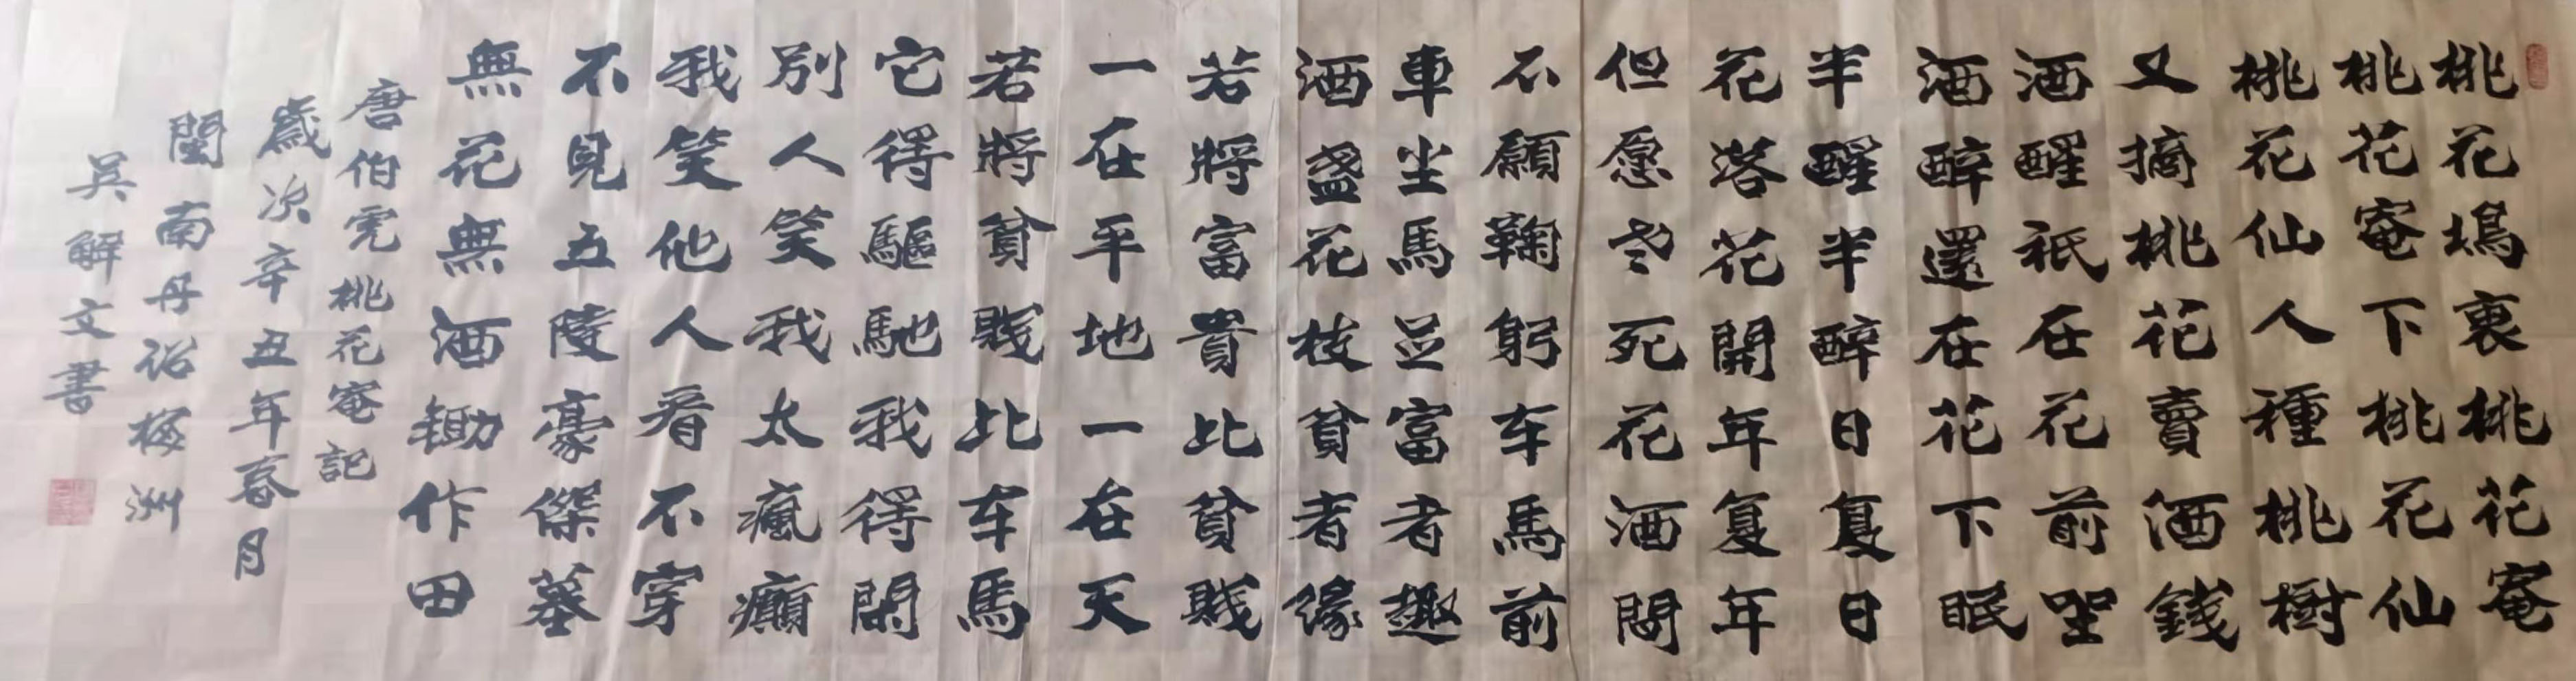 桃花塢裏桃花庵
桃花庵下桃花仙
桃花仙人種桃樹
又摘桃花賣酒錢
酒醒祇在花前坐
酒醉還在花下眠
半醒半醉日复日
花落花開年复年
但愿老死花酒間
不願鞠躬车馬前
車尘馬足富者趣
酒盞花枝貧者緣
若將富貴比貧賤
一在平地一在天
若將貧賤比车馬
它得驅馳我得閑
別人笑我太瘋癲
我笑他人看不穿
不見五陵豪傑墓
無花無酒锄作田
唐伯虎桃花庵記
歲次辛丑年春月
閩南丹詔梅洲
吳解文書